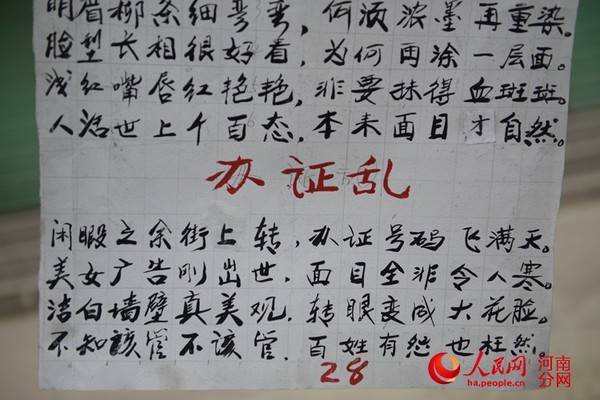 明眉柳条细弯弯,何须浓墨再重染。
脸型长相很好看,为何再涂一层面。
浅红嘴唇红艳艳,非要抹得血斑斑。
人活世上千百态,本来面目才自然。
办证乱
闲暇之余街上转,办证号码飞满天。
美女广告刚出世,面目全非令人寒。
洁白墙壁真美观,转眼变成大花脸。
不知該管不该管,百姓有怨也枉然。
28
人民网 河南分网
ha.people.cn